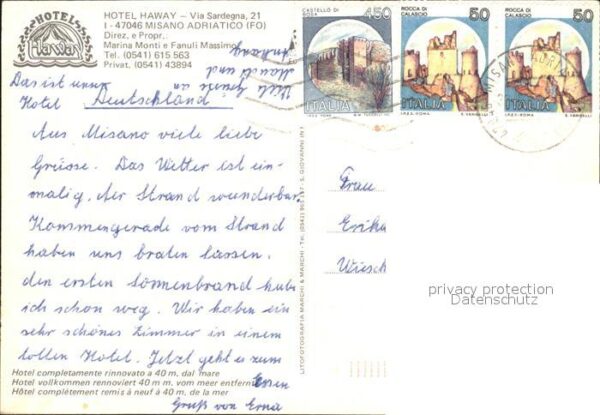 HOTEL
Haway
HOTEL HAWAY – Via Sardegna, 21
I - 47046 MISANO ADRIATICO (FO)
Direz. e Propr.
Marina Monti e Fanuli Massimo
Tel. (0541) 615 563
Privat. (0541) 43894
Viele Grüsse an
und
Das ist unser
Hotel Deutschland
Aus Misano viele liebe
Grüsse. Das Wetter ist ein-
malig, der Strand wunderbar.
Kommen gerade vom Strand
haben uns braten lassen,
den ersten Sonnenbrand habe
ich schon weg. Wir haben ein
sehr schönes Zimmer in einem
tollen Hotel. Jetzt geht es zum
Essen
Gruß von Erna
Hotel completamente rinnovato a 40 m. dal mare
Hotel vollkommen renoviert 40 m m. vom meer entfernt
Hôtel complètement remis à neuf à 40 m. de la mer
LITOFOTOGRAFIA MARCHI & MARCHI - Tel. (0541) S. GIOVANNI IN
CASTELLO DI ROSA
450
ITALIA
I.P.Z.S. ROMA
ROCCA DI CALASCIO
50
ITALIA
I.P.Z.S. - ROMA
E. VANGELLI
ROCCA DI CALASCIO
50
ITALIA
I.P.Z.S. - ROMA
E. VANGELLI
MISANO ADRI
Frau
Erika
Wiesch
privacy protection
Datenschutz